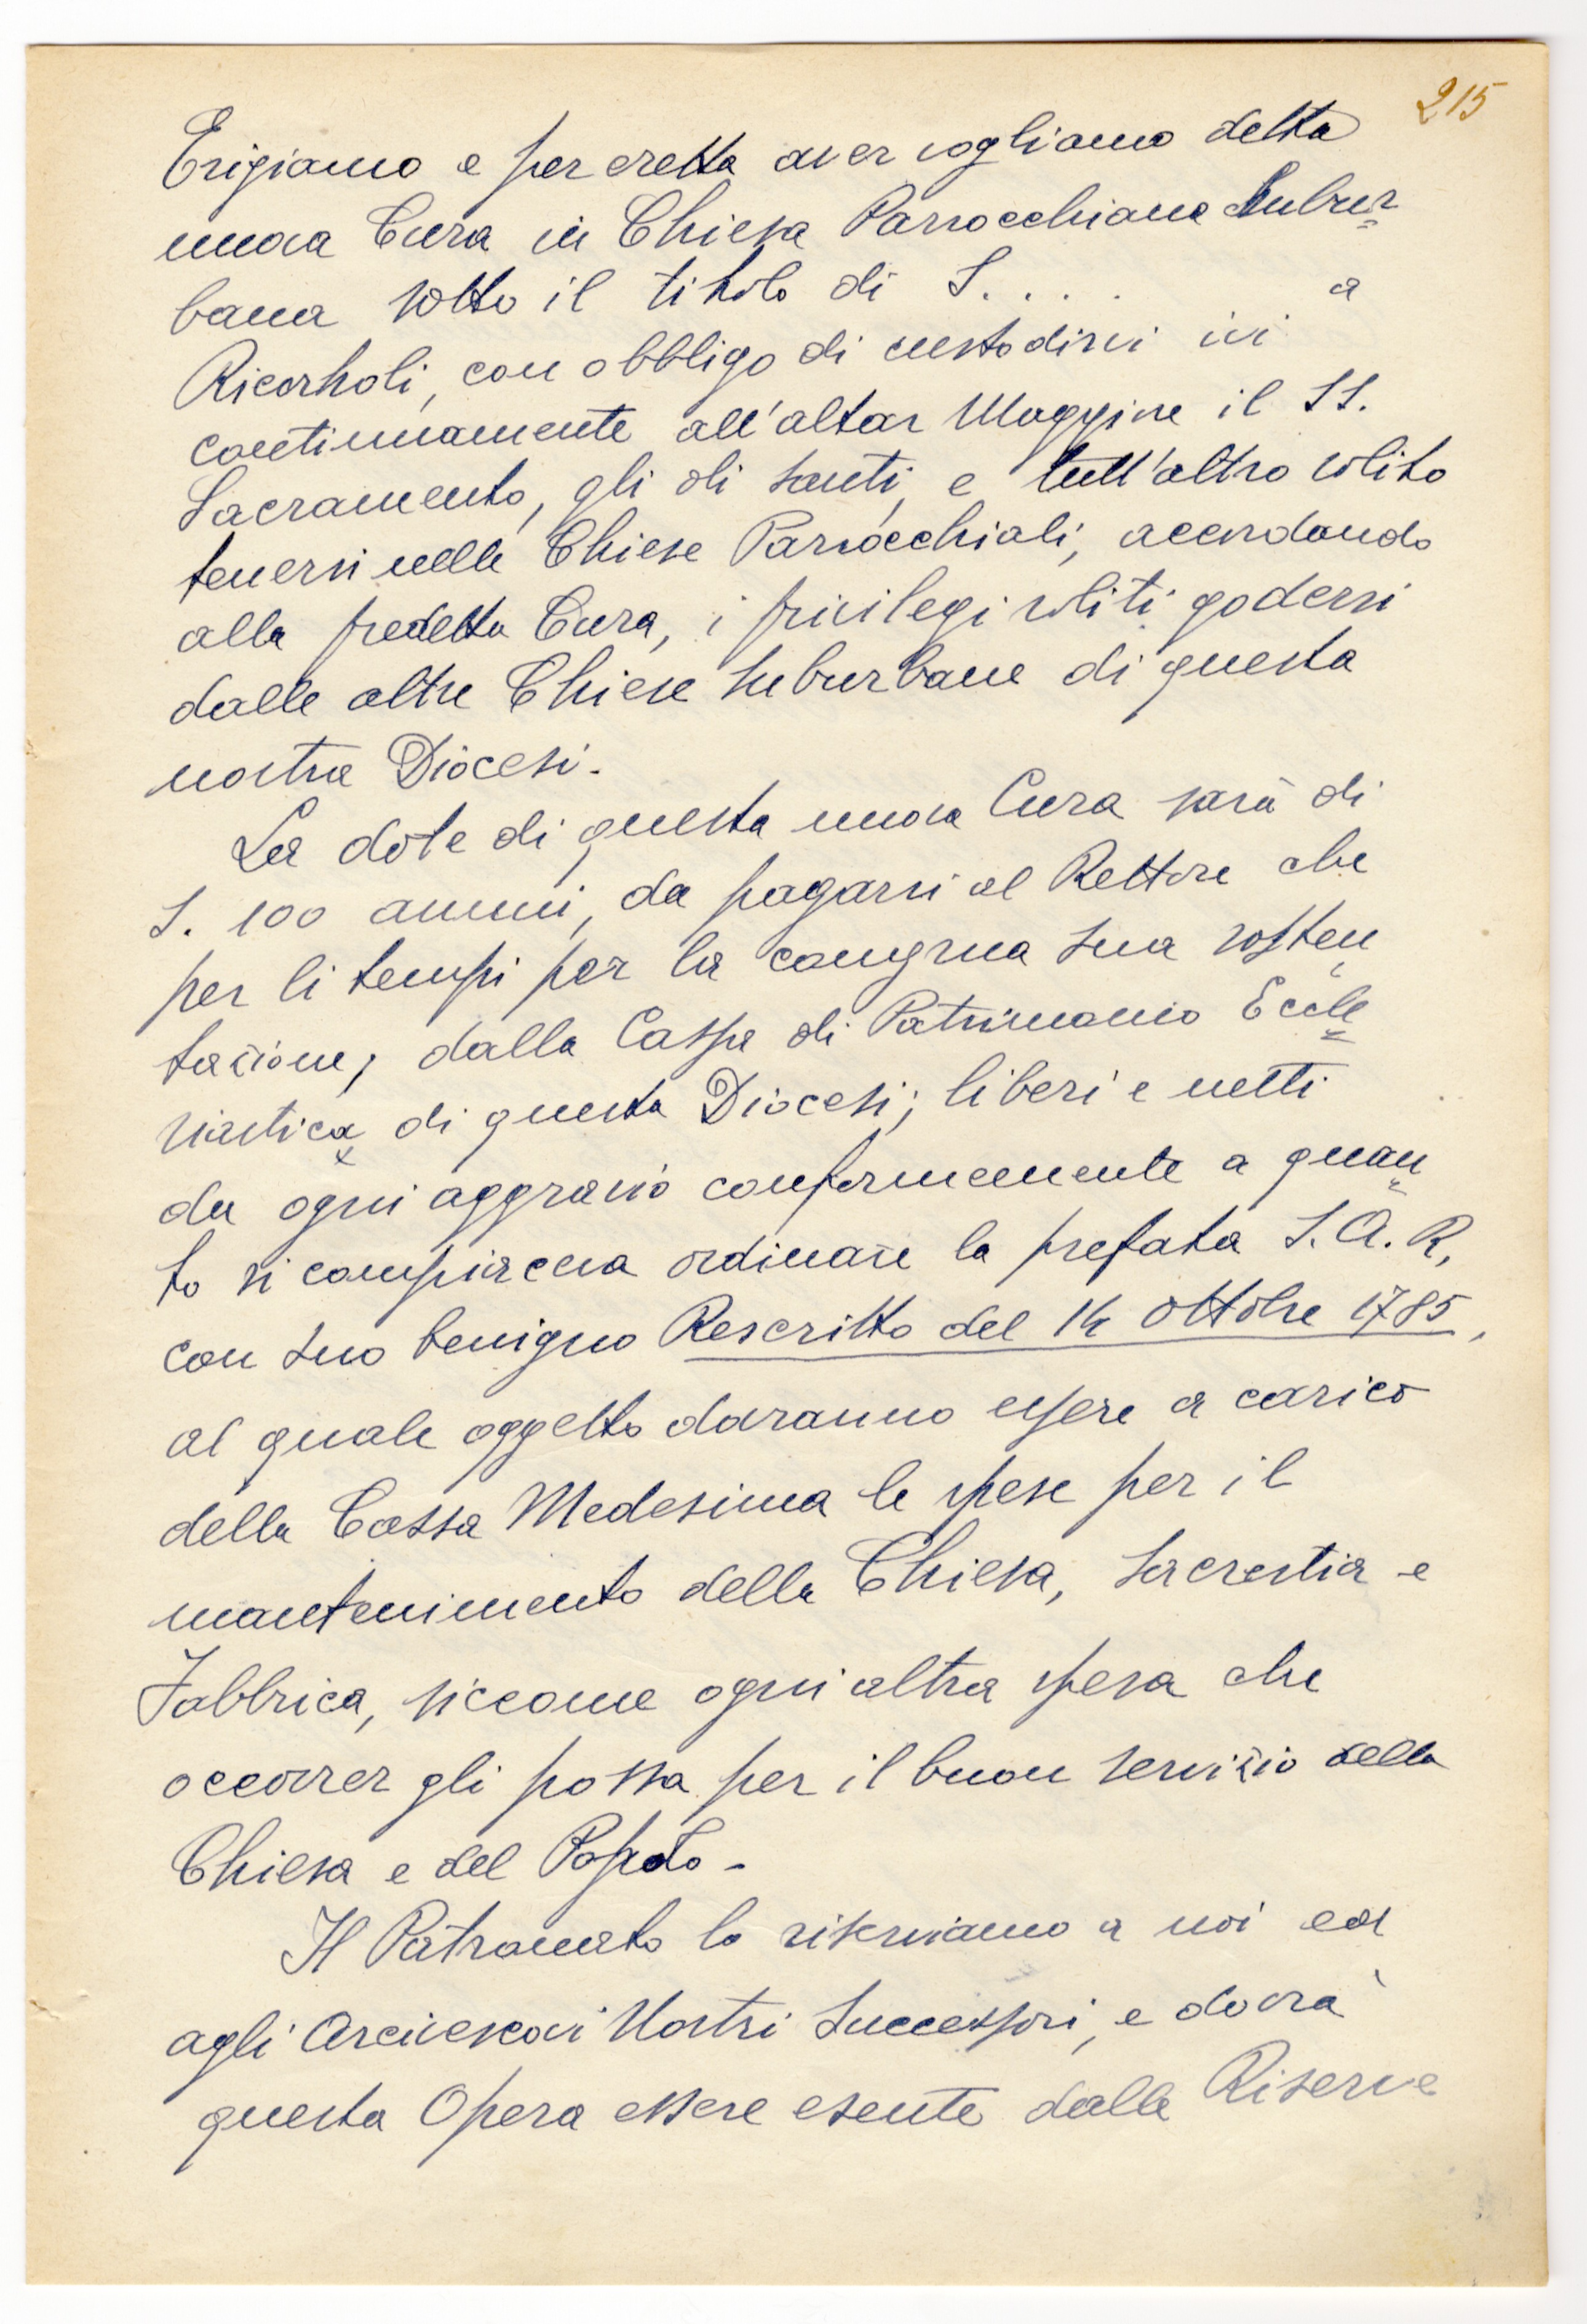 215
Erigiamo e per eretta aver vogliamo detta
nuova Cura in Chiesa Parrocchiane Subur=
bana sotto il titolo di S. . . . a
Ricorboli, con obbligo di custodirvi ivi
continuamente all'altar Maggiore il SS.
Sacramento, gli oli santi, e tutt'altro solito
tenersi nelle Chiese Parrocchiali, accordando
alla predetta Cura, i privilegi soliti godersi
dalle altre Chiese suburbane di questa
nostra Diocesi.
La dote di questa nuova Cura sarà di
S. 100 annui, da pagarsi al Rettore che
per li tempi per la congrua sua sosten=
tazione, dalla Cassa di Patrimonio Eccle=
siastica di questa Diocesi; liberi e netti
da ogni aggravio conformemente a quan=
to si compiaceva ordinare la prefata S.A.R,
con suo benigno Rescritto del 14 ottobre 1785,
al quale oggetto doranno essere a carico
della Cassa Medesima le spese per il
mantenimento della Chiesa, Sacrestia e
Fabbrica, siccome ogni altra spesa che
occorrer gli possa per il buon servizio della
Chiesa e del Popolo -
Il Patronato lo riserviamo a noi ed
agli Arcivescovi Nostri Successori, e dovrà
questa Opera essere esente dalle Riserve